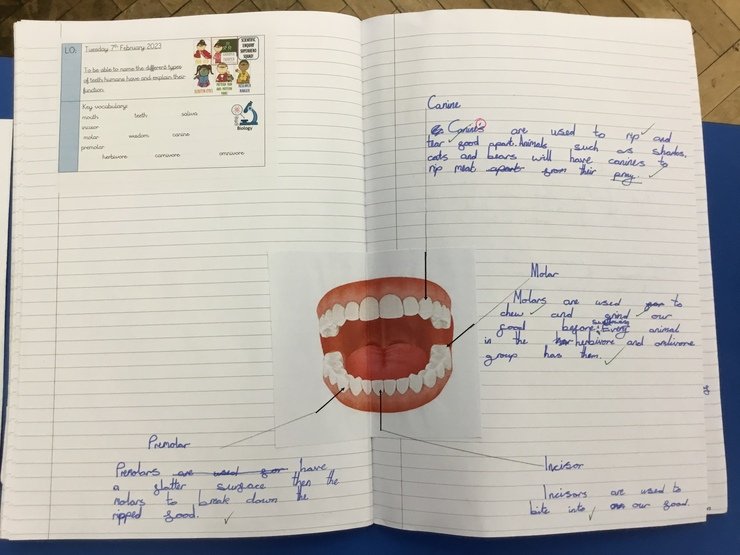 L.O.
Tuesday 7th February 2023
To be able to name the different types
of teeth humans have and explain their
function.
SCIENTIFIC
ENQUIRY
SUPERHERO
SQUAD!
Key vocabulary:
mouth teeth saliva
incisor
molar wisdom canine
premolar
herbivore carnivore omnivore
Biology
Canine
Canines are used to rip and
tear food apart. Animals such as sharks,
cats and bears will have canines to
rip meat apart from their prey.
Molar
Molars are used to
chew and grind our
food before swallowing. Every animal
in the herbivore and omnivore
group has them.
Premolar
Premolars are used for have
a flatter surface then the
molars to break down the
ripped food.
Incisor
Incisors are used to
bite into our food.